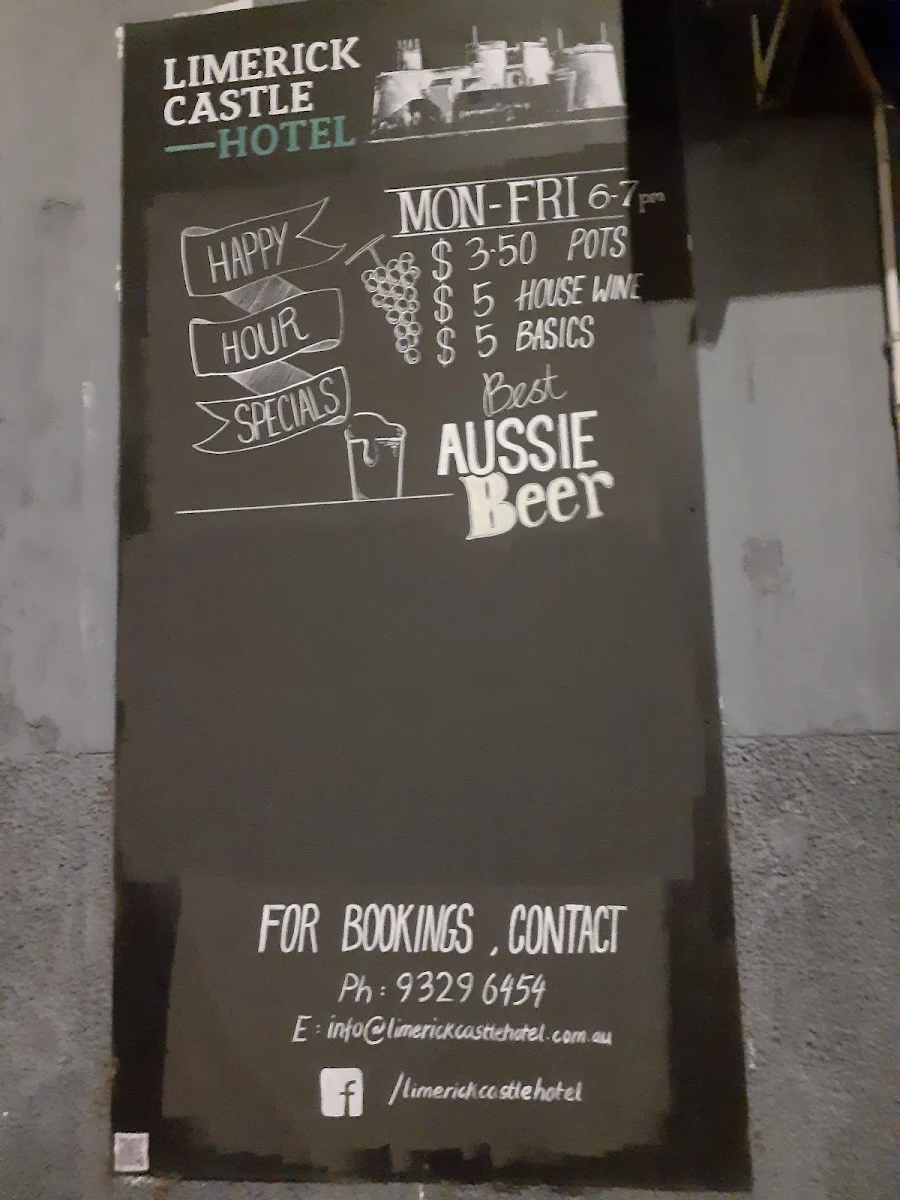 LIMERICK
CASTLE
—HOTEL
HAPPY
HOUR
SPECIALS
MON-FRI 6-7pm
$ 3.50 POTS
$ 5 HOUSE WINE
$ 5 BASICS
Best
AUSSIE
Beer
FOR BOOKINGS, CONTACT
Ph: 9329 6454
E: info@limerickcastlehotel.com.au
f /limerickcastlehotel